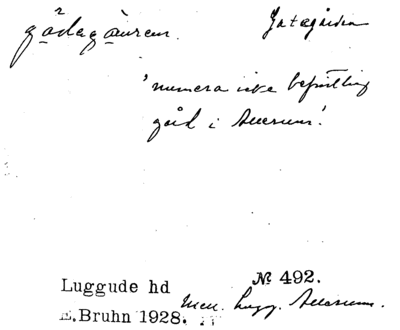 gådagåuren. Gategården
'numera icke befintlig
gård i Allerum.'
Luggude hd № 492.
E.Bruhn 1928. Medd. Lugg. Allerum.